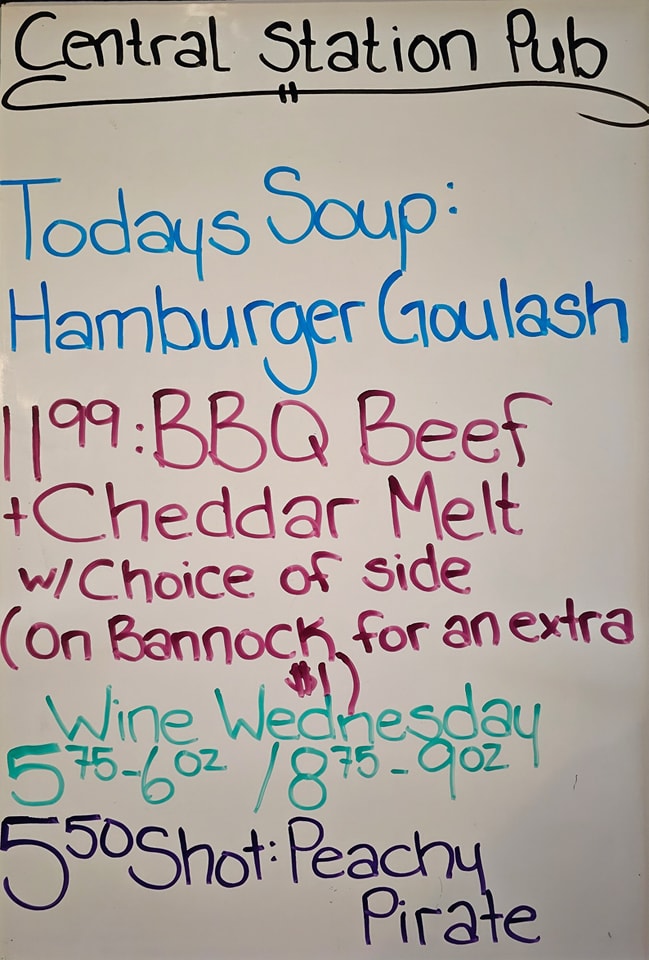 Central Station Pub
Todays Soup:
Hamburger Goulash
11⁹⁹: BBQ Beef
+Cheddar Melt
w/Choice of side
(on Bannock for an extra
$1)
Wine Wednesday
5⁷⁵-6oz /8⁷⁵-9oz
5⁵⁰ Shot: Peachy
Pirate